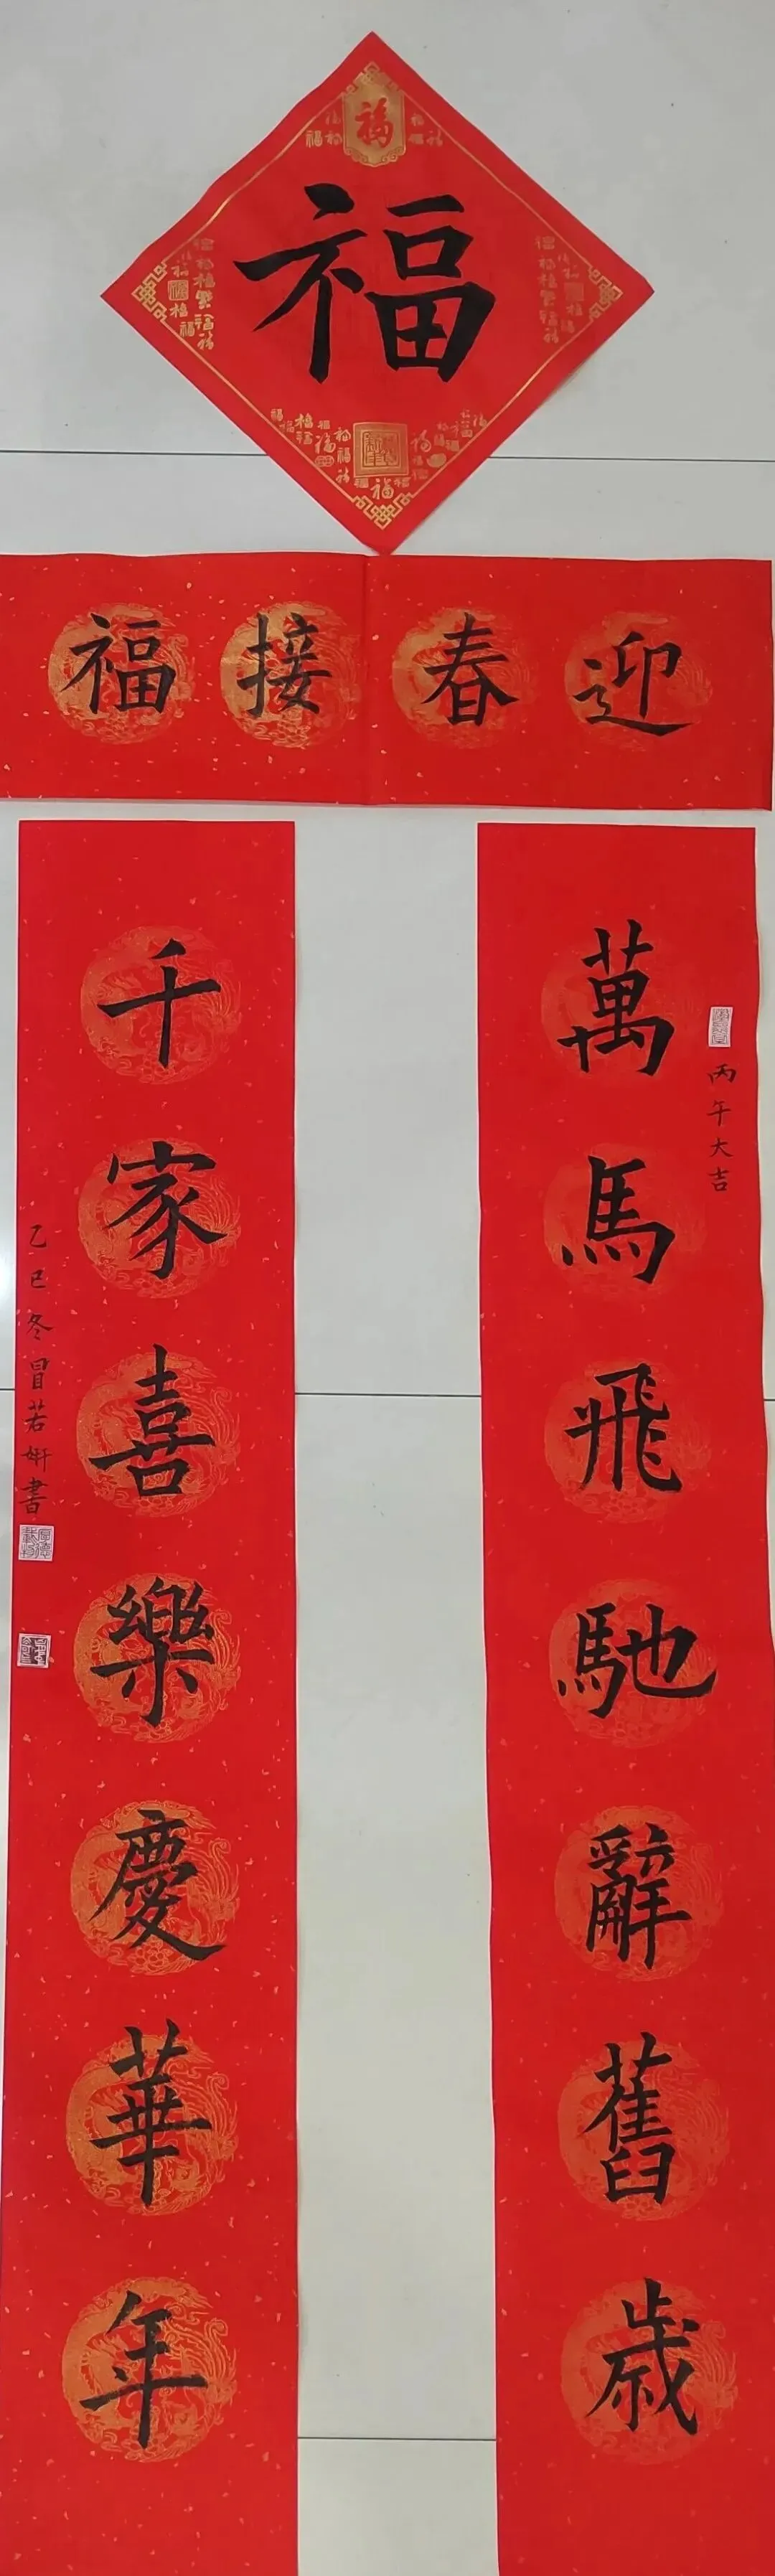 福
福
迎春接福
萬馬飛馳辭舊歲
丙午大吉
千家喜樂慶華年
乙巳冬冒若妍書